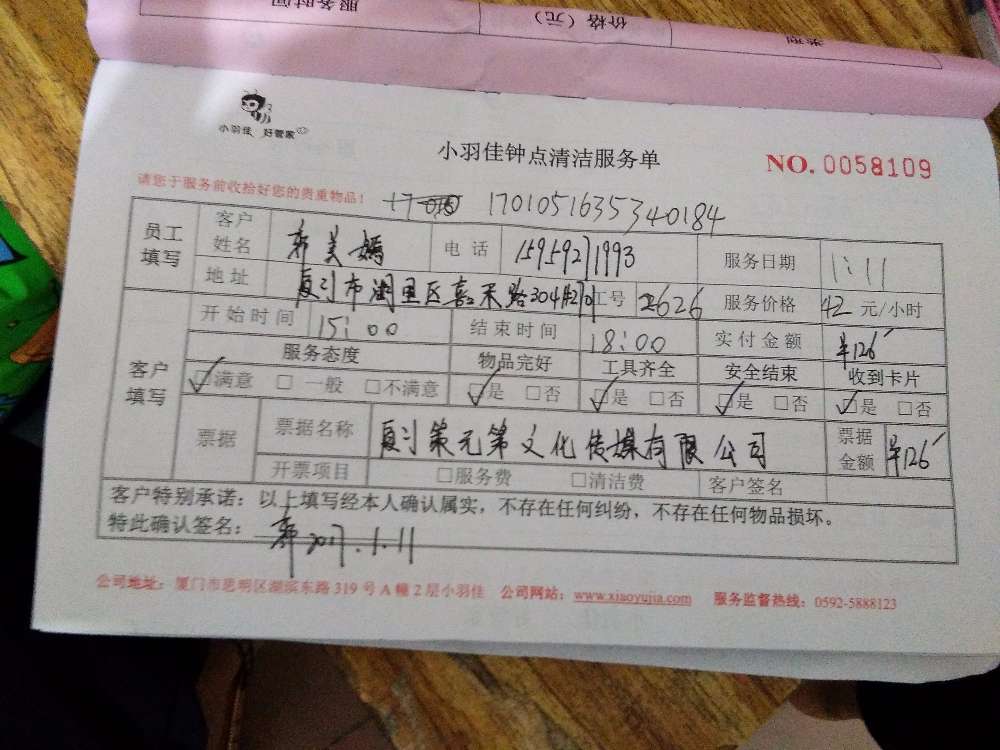 服务时间 价格（元） 类型
小羽佳 好管家
小羽佳钟点清洁服务单 NO. 0058109
请您于服务前收拾好您的贵重物品！ 1701051635340184
员工填写 客户姓名 郭美嫣 电话 15959271993 服务日期 1:11
地址 厦门市湖里区嘉禾路304 工号 2626 服务价格 42 元/小时
客户填写 开始时间 15:00 结束时间 18:00 实付金额 ¥126
服务态度 物品完好 工具齐全 安全结束 收到卡片
☑满意 □一般 □不满意 ☑是 □否 ☑是 □否 ☑是 □否 ☑是 □否
票据 票据名称 厦门策元第文化传媒有限公司 票据金额 ¥126
开票项目 □服务费 □清洁费 客户签名
客户特别承诺：以上填写经本人确认属实，不存在任何纠纷，不存在任何物品损坏。
特此确认签名：郭 2017.1.11
公司地址：厦门市思明区湖滨东路 319 号 A 幢 2 层小羽佳 公司网站：www.xiaoyujia.com 服务监督热线：0592-5888123